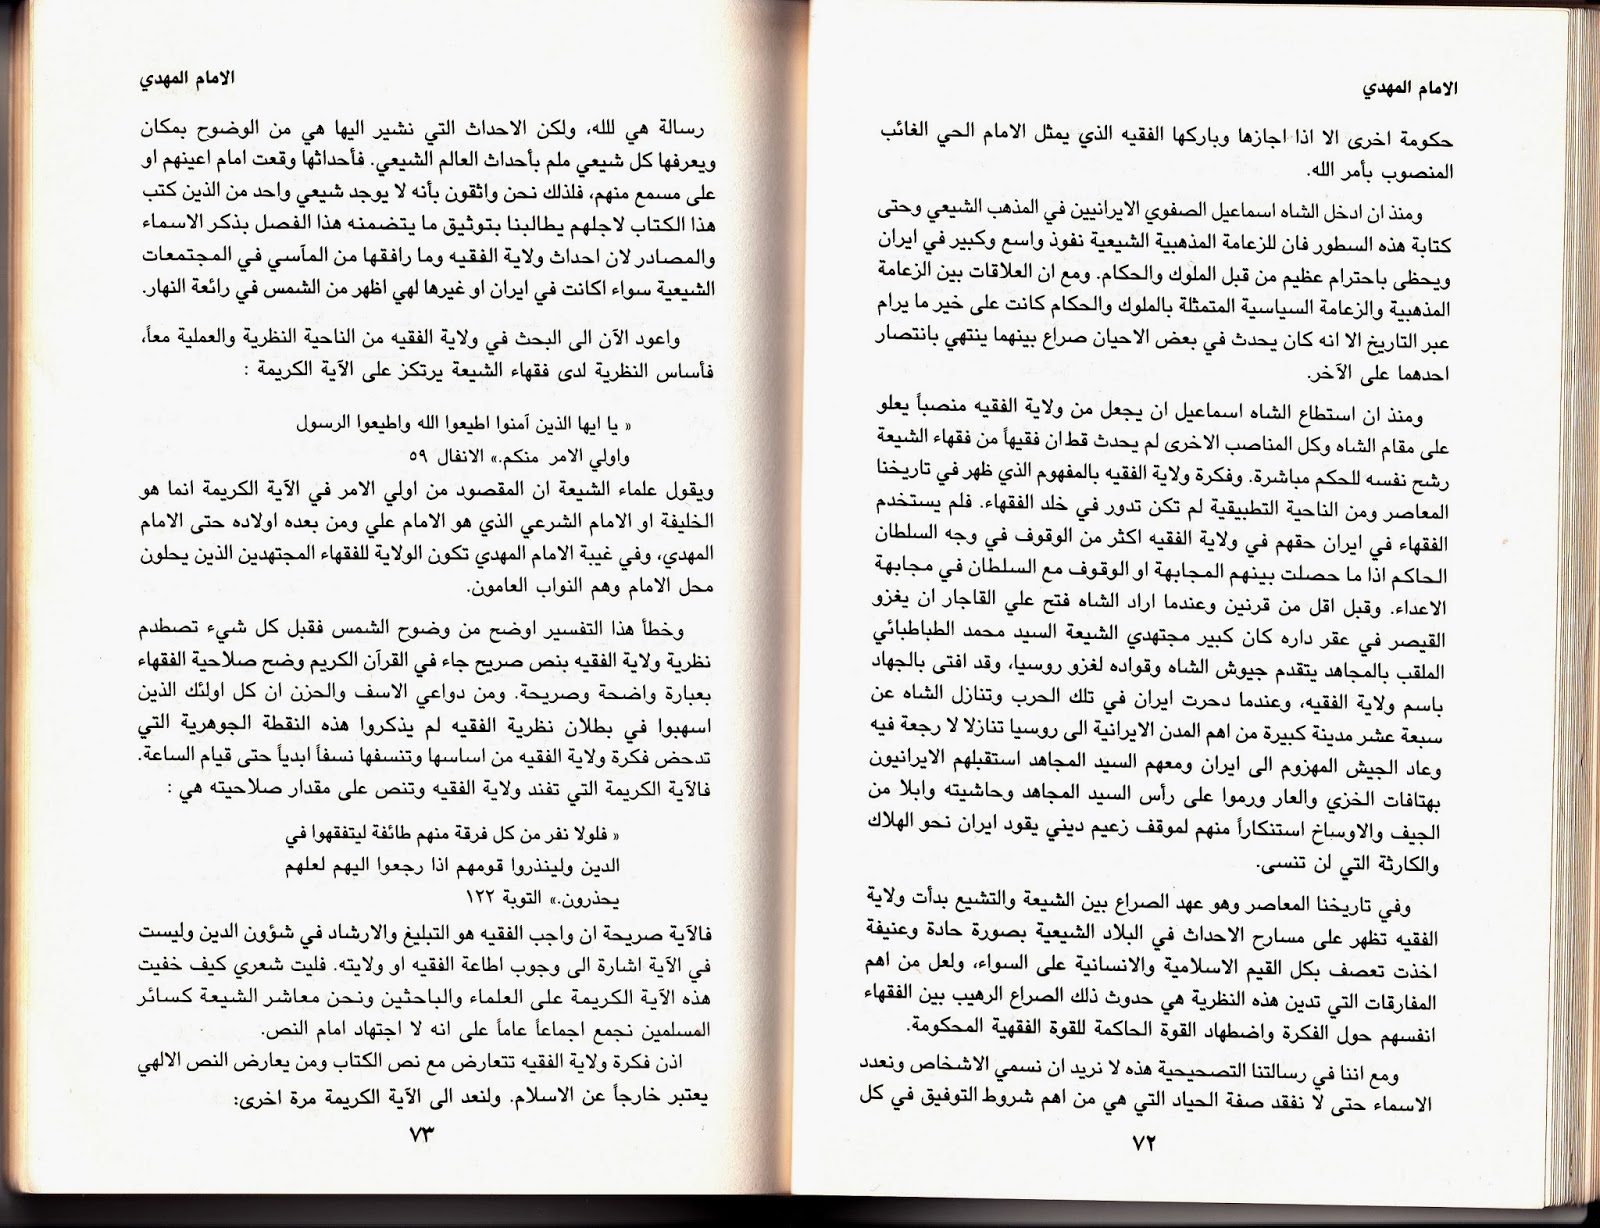 الامام المهدي
حكومة اخرى الا اذا اجازها وباركها الفقيه الذي يمثل الامام الحي الغائب
المنصوب بأمر الله.
ومنذ ان ادخل الشاه اسماعيل الصفوي الايرانيين في المذهب الشيعي وحتى
كتابة هذه السطور فان للزعامة المذهبية الشيعية نفوذ واسع وكبير في ايران
ويحظى باحترام عظيم من قبل الملوك والحكام. ومع ان العلاقات بين الزعامة
المذهبية والزعامة السياسية المتمثلة بالملوك والحكام كانت على خير ما يرام
عبر التاريخ الا انه كان يحدث في بعض الاحيان صراع بينهما ينتهي بانتصار
احدهما على الآخر.
ومنذ ان استطاع الشاه اسماعيل ان يجعل من ولاية الفقيه منصباً يعلو
على مقام الشاه وكل المناصب الاخرى لم يحدث قط ان فقيهاً من فقهاء الشيعة
رشح نفسه للحكم مباشرة. وفكرة ولاية الفقيه بالمفهوم الذي ظهر في تاريخنا
المعاصر ومن الناحية التطبيقية لم تكن تدور في خلد الفقهاء. فلم يستخدم
الفقهاء في ايران حقهم في ولاية الفقيه اكثر من الوقوف في وجه السلطان
الحاكم اذا ما حصلت بينهم المجابهة او الوقوف مع السلطان في مجابهة
الاعداء. وقبل اقل من قرنين وعندما اراد الشاه فتح علي القاجار ان يغزو
القيصر في عقر داره كان كبير مجتهدي الشيعة السيد محمد الطباطبائي
الملقب بالمجاهد يتقدم جيوش الشاه وقواده لغزو روسيا، وقد افتى بالجهاد
باسم ولاية الفقيه، وعندما دحرت ايران في تلك الحرب وتنازل الشاه عن
سبعة عشر مدينة كبيرة من اهم المدن الايرانية الى روسيا تنازلا لا رجعة فيه
وعاد الجيش المهزوم الى ايران ومعهم السيد المجاهد استقبلهم الايرانيون
بهتافات الخزي والعار ورموا على رأس السيد المجاهد وحاشيته وابلا من
الجيف والاوساخ استنكاراً منهم لموقف زعيم ديني يقود ايران نحو الهلاك
والكارثة التي لن تنسى.
وفي تاريخنا المعاصر وهو عهد الصراع بين الشيعة والتشيع بدأت ولاية
الفقيه تظهر على مسارح الاحداث في البلاد الشيعية بصورة حادة وعنيفة
اخذت تعصف بكل القيم الاسلامية والانسانية على السواء، ولعل من اهم
المفارقات التي تدين هذه النظرية هي حدوث ذلك الصراع الرهيب بين الفقهاء
انفسهم حول الفكرة واضطهاد القوة الحاكمة للقوة الفقهية المحكومة.
ومع اننا في رسالتنا التصحيحية هذه لا نريد ان نسمي الاشخاص ونعدد
الاسماء حتى لا نفقد صفة الحياد التي هي من اهم شروط التوفيق في كل
٧٢
الامام المهدي
رسالة هي لله، ولكن الاحداث التي نشير اليها هي من الوضوح بمكان
ويعرفها كل شيعي ملم بأحداث العالم الشيعي. فأحداثها وقعت امام اعينهم او
على مسمع منهم، فلذلك نحن واثقون بأنه لا يوجد شيعي واحد من الذين كتب
هذا الكتاب لاجلهم يطالبنا بتوثيق ما يتضمنه هذا الفصل بذكر الاسماء
والمصادر لان احداث ولاية الفقيه وما رافقها من المآسي في المجتمعات
الشيعية سواء اكانت في ايران او غيرها لهي اظهر من الشمس في رائعة النهار.
واعود الآن الى البحث في ولاية الفقيه من الناحية النظرية والعملية معاً،
فأساس النظرية لدى فقهاء الشيعة يرتكز على الآية الكريمة :
« يا ايها الذين آمنوا اطيعوا الله واطيعوا الرسول
واولي الامر منكم.» الانفال ٥٩
ويقول علماء الشيعة ان المقصود من اولي الامر في الآية الكريمة انما هو
الخليفة او الامام الشرعي الذي هو الامام علي ومن بعده اولاده حتى الامام
المهدي، وفي غيبة الامام المهدي تكون الولاية للفقهاء المجتهدين الذين يحلون
محل الامام وهم النواب العامون.
وخطأ هذا التفسير اوضح من وضوح الشمس فقبل كل شيء تصطدم
نظرية ولاية الفقيه بنص صريح جاء في القرآن الكريم وضح صلاحية الفقهاء
بعبارة واضحة وصريحة. ومن دواعي الاسف والحزن ان كل اولئك الذين
اسهبوا في بطلان نظرية الفقيه لم يذكروا هذه النقطة الجوهرية التي
تدحض فكرة ولاية الفقيه من اساسها وتنسفها نسفاً ابدياً حتى قيام الساعة.
فالآية الكريمة التي تفند ولاية الفقيه وتنص على مقدار صلاحيته هي :
« فلولا نفر من كل فرقة منهم طائفة ليتفقهوا في
الدين ولينذروا قومهم اذا رجعوا اليهم لعلهم
يحذرون.» التوبة ١٢٢
فالآية صريحة ان واجب الفقيه هو التبليغ والارشاد في شؤون الدين وليست
في الآية اشارة الى وجوب اطاعة الفقيه او ولايته. فليت شعري كيف خفيت
هذه الآية الكريمة على العلماء والباحثين ونحن معاشر الشيعة كسائر
المسلمين نجمع اجماعاً عاماً على انه لا اجتهاد امام النص.
اذن فكرة ولاية الفقيه تتعارض مع نص الكتاب ومن يعارض النص الالهي
يعتبر خارجاً عن الاسلام. ولنعد الى الآية الكريمة مرة اخرى:
٧٣